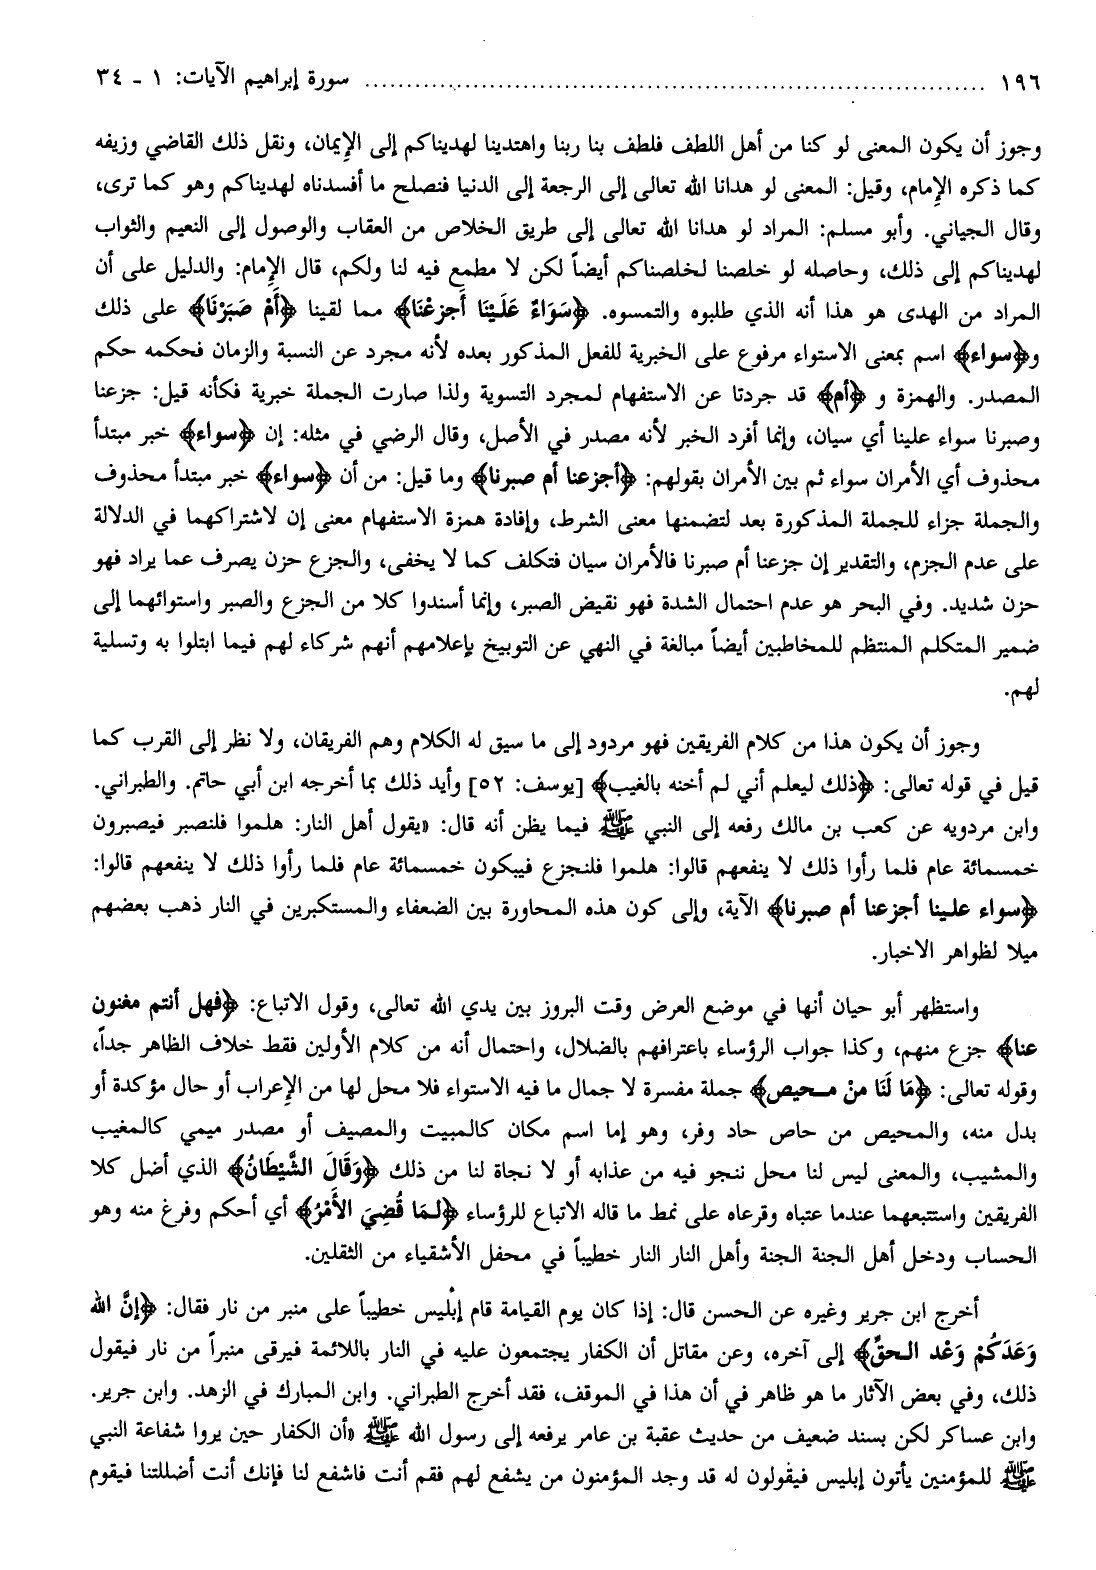 ١٩٦ ........................................ سورة إبراهيم الآيات: ١ - ٣٤
وجوز أن يكون المعنى لو كنا من أهل اللطف فلطف بنا ربنا واهتدينا لهديناكم إلى الإيمان، ونقل ذلك القاضي وزيفه
كما ذكره الإمام، وقيل: المعنى لو هدانا الله تعالى إلى الرجعة إلى الدنيا فنصلح ما أفسدناه لهديناكم وهو كما ترى،
وقال الجياني. وأبو مسلم: المراد لو هدانا الله تعالى إلى طريق الخلاص من العقاب والوصول إلى النعيم والثواب
لهديناكم إلى ذلك، وحاصله لو خلصنا لخلصناكم أيضاً لكن لا مطمع فيه لنا ولكم، قال الإمام: والدليل على أن
المراد من الهدى هو هذا أنه الذي طلبوه والتمسوه. ﴿سَوَاءٌ عَلَيْنَا أَجزعْنَا﴾ مما لقينا ﴿أَمْ صَبَرْنَا﴾ على ذلك
و﴿سواء﴾ اسم بمعنى الاستواء مرفوع على الخبرية للفعل المذكور بعده لأنه مجرد عن النسبة والزمان فحكمه حكم
المصدر. والهمزة و ﴿أم﴾ قد جردتا عن الاستفهام لمجرد التسوية ولذا صارت الجملة خبرية فكأنه قيل: جزعنا
وصبرنا سواء علينا أي سيان، وإنما أفرد الخبر لأنه مصدر في الأصل، وقال الرضي في مثله: إن ﴿سواء﴾ خبر مبتدأ
محذوف أي الأمران سواء ثم بين الأمران بقولهم: ﴿أجزعنا أم صبرنا﴾ وما قيل: من أن ﴿سواء﴾ خبر مبتدأ محذوف
والجملة جزاء للجملة المذكورة بعد لتضمنها معنى الشرط، وإفادة همزة الاستفهام معنى إن لاشتراكهما في الدلالة
على عدم الجزم، والتقدير إن جزعنا أم صبرنا فالأمران سيان فتكلف كما لا يخفى، والجزع حزن يصرف عما يراد فهو
حزن شديد. وفي البحر هو عدم احتمال الشدة فهو نقيض الصبر، وإنما أسندوا كلا من الجزع والصبر واستوائهما إلى
ضمير المتكلم المنتظم للمخاطبين أيضاً مبالغة في النهي عن التوبيخ بإعلامهم أنهم شركاء لهم فيما ابتلوا به وتسلية
لهم.
وجوز أن يكون هذا من كلام الفريقين فهو مردود إلى ما سيق له الكلام وهم الفريقان، ولا نظر إلى القرب كما
قيل في قوله تعالى: ﴿ذلك ليعلم أني لم أخنه بالغيب﴾ [يوسف: ٥٢] وأيد ذلك بما أخرجه ابن أبي حاتم. والطبراني.
وابن مردويه عن كعب بن مالك رفعه إلى النبي ﷺ فيما يظن أنه قال: «يقول أهل النار: هلموا فلنصبر فيصبرون
خمسمائة عام فلما رأوا ذلك لا ينفعهم قالوا: هلموا فلنجزع فيبكون خمسمائة عام فلما رأوا ذلك لا ينفعهم قالوا:
﴿سواء علينا أجزعنا أم صبرنا﴾ الآية، وإلى كون هذه المحاورة بين الضعفاء والمستكبرين في النار ذهب بعضهم
ميلا لظواهر الاخبار.
واستظهر أبو حيان أنها في موضع العرض وقت البروز بين يدي الله تعالى، وقول الاتباع: ﴿فهل أنتم مغنون
عنا﴾ جزع منهم، وكذا جواب الرؤساء باعترافهم بالضلال، واحتمال أنه من كلام الأولين فقط خلاف الظاهر جداً،
وقوله تعالى: ﴿مَا لَنَا منْ محيص﴾ جملة مفسرة لا جمال ما فيه الاستواء فلا محل لها من الإعراب أو حال مؤكدة أو
بدل منه، والمحيص من حاص حاد وفر، وهو إما اسم مكان كالمبيت والمصيف أو مصدر ميمي كالمغيب
والمشيب، والمعنى ليس لنا محل ننجو فيه من عذابه أو لا نجاة لنا من ذلك ﴿وَقَالَ الشَّيْطَانُ﴾ الذي أضل كلا
الفريقين واستتبعهما عندما عتباه وقرعاه على نمط ما قاله الاتباع للرؤساء ﴿لمَا قُضِيَ الأَمْرُ﴾ أي أحكم وفرغ منه وهو
الحساب ودخل أهل الجنة الجنة وأهل النار النار خطيباً في محفل الأشقياء من الثقلين.
أخرج ابن جرير وغيره عن الحسن قال: إذا كان يوم القيامة قام إبليس خطيباً على منبر من نار فقال: ﴿إنَّ الله
وَعَدَكُمْ وَعْد الحقِّ﴾ إلى آخره، وعن مقاتل أن الكفار يجتمعون عليه في النار باللائمة فيرقى منبراً من نار فيقول
ذلك، وفي بعض الآثار ما هو ظاهر في أن هذا في الموقف، فقد أخرج الطبراني. وابن المبارك في الزهد. وابن جرير.
وابن عساكر لكن بسند ضعيف من حديث عقبة بن عامر يرفعه إلى رسول الله ﷺ «أن الكفار حين يروا شفاعة النبي
ﷺ للمؤمنين يأتون إبليس فيقولون له قد وجد المؤمنون من يشفع لهم فقم أنت فاشفع لنا فإنك أنت أضللتنا فيقوم